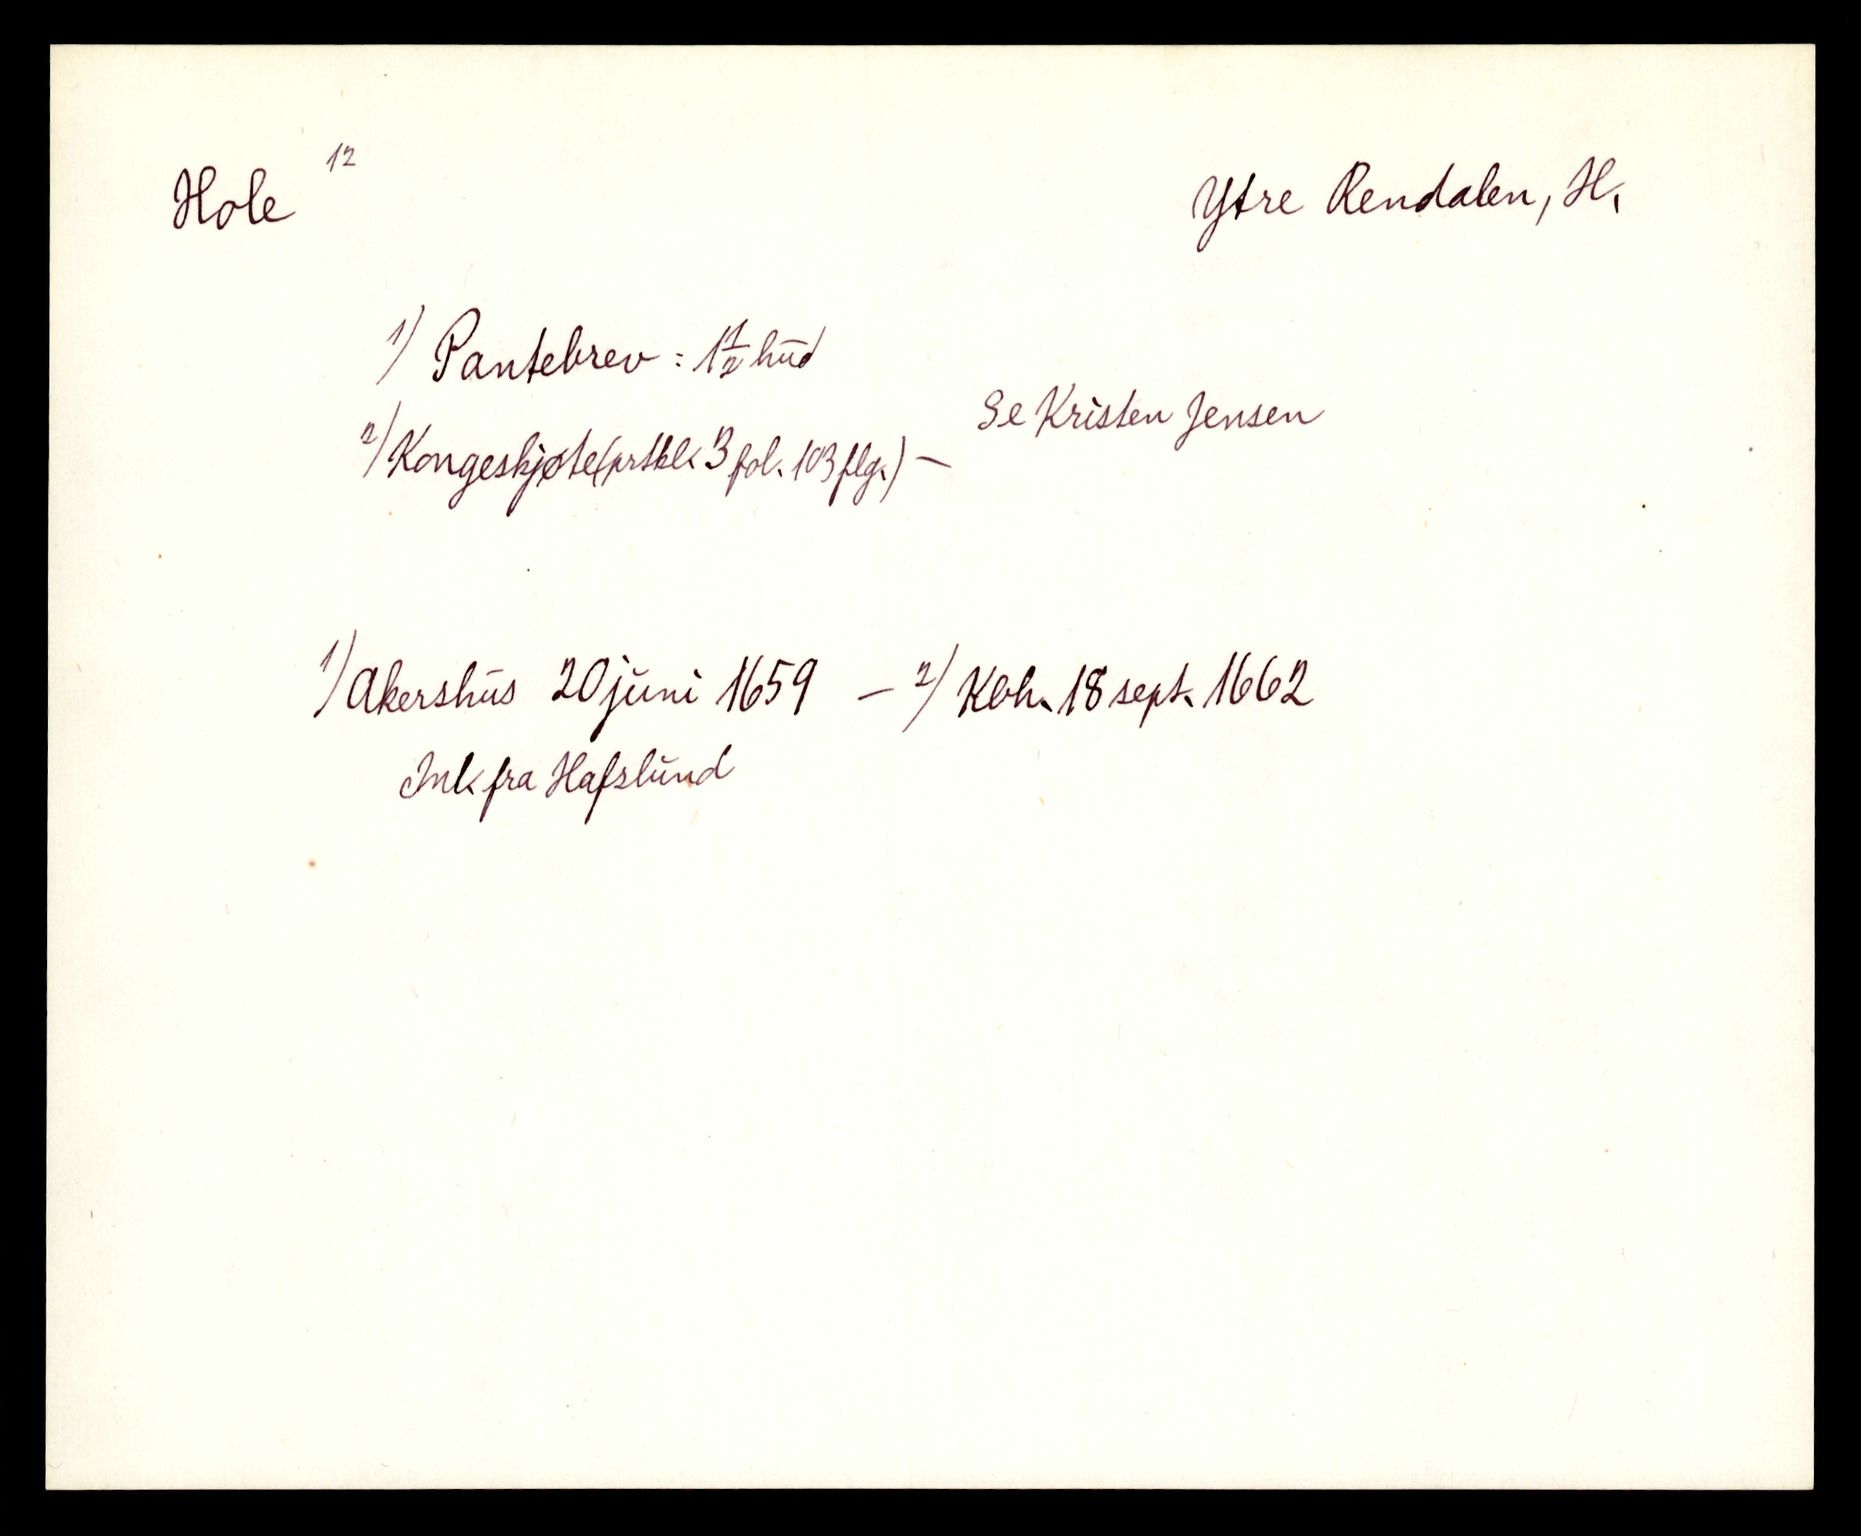 Hole 12
Ytre Rendalen, H.
1) Pantebrev : 1 1/2 hud
2) Kongeskjøte (prtkl. 3 fol. 103 flg.) —
Se Kristen Jensen
1) Akershus 20 juni 1659 — 2) Kbh. 18 sept. 1662
Ink. fra Hafslund